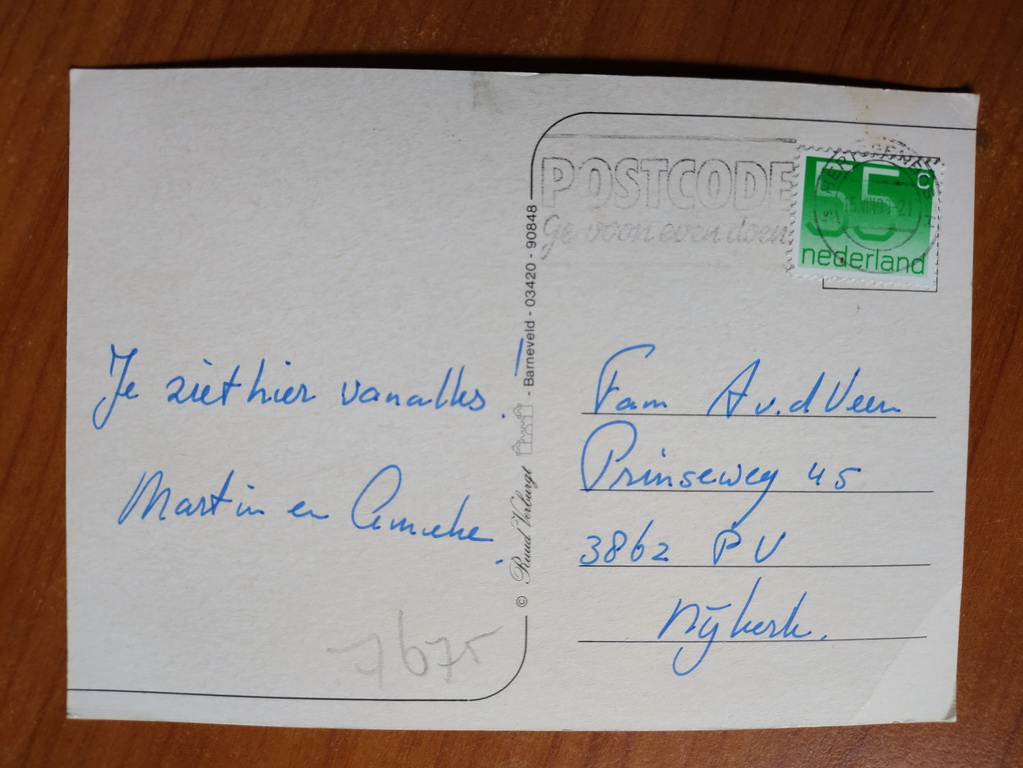 Je ziet hier vanalles.
Martin en Anneke.
7675
© Ruud Verburgt - Barneveld - 03420 - 90848
POSTCODE
Ge woon even doen
55 c
nederland
Fam A v.d Veen
Prinseweg 45
3862 PV
Nijkerk.